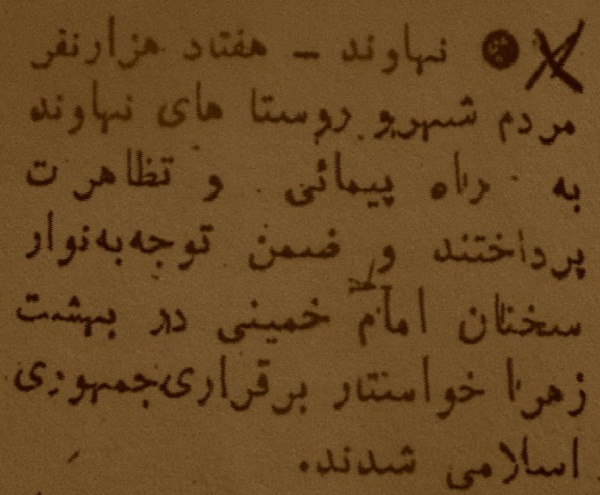 ● نهاوند – هفتاد هزارنفر
مردم شهر و روستا های نهاوند
به راه پیمائی و تظاهرت
پرداختند و ضمن توجه‌به‌نوار
سخنان امام خمینی در بهشت
زهرا خواستار برقراری‌جمهوری
اسلامی شدند.